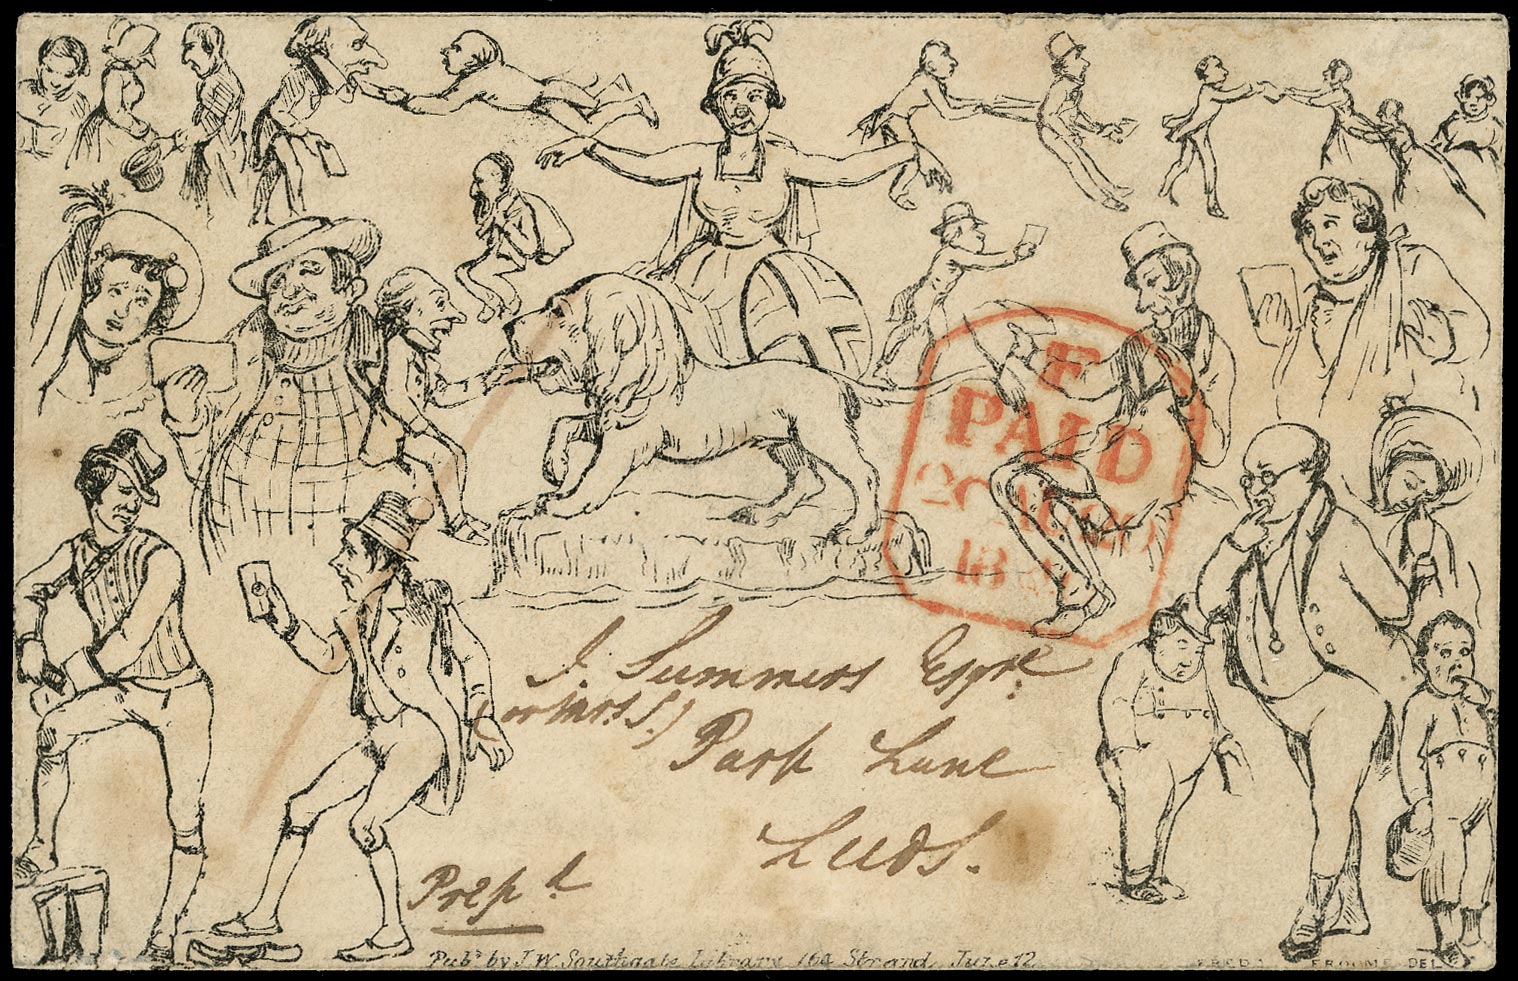 F
PAID
20 AU 20
18
J. Summers Esqre
(or Mrs S.)
Park Lane
Leeds.
Prepd
Pubd by J.W. Southgate Library 164 Strand, June 12
FREDK FROOME DEL